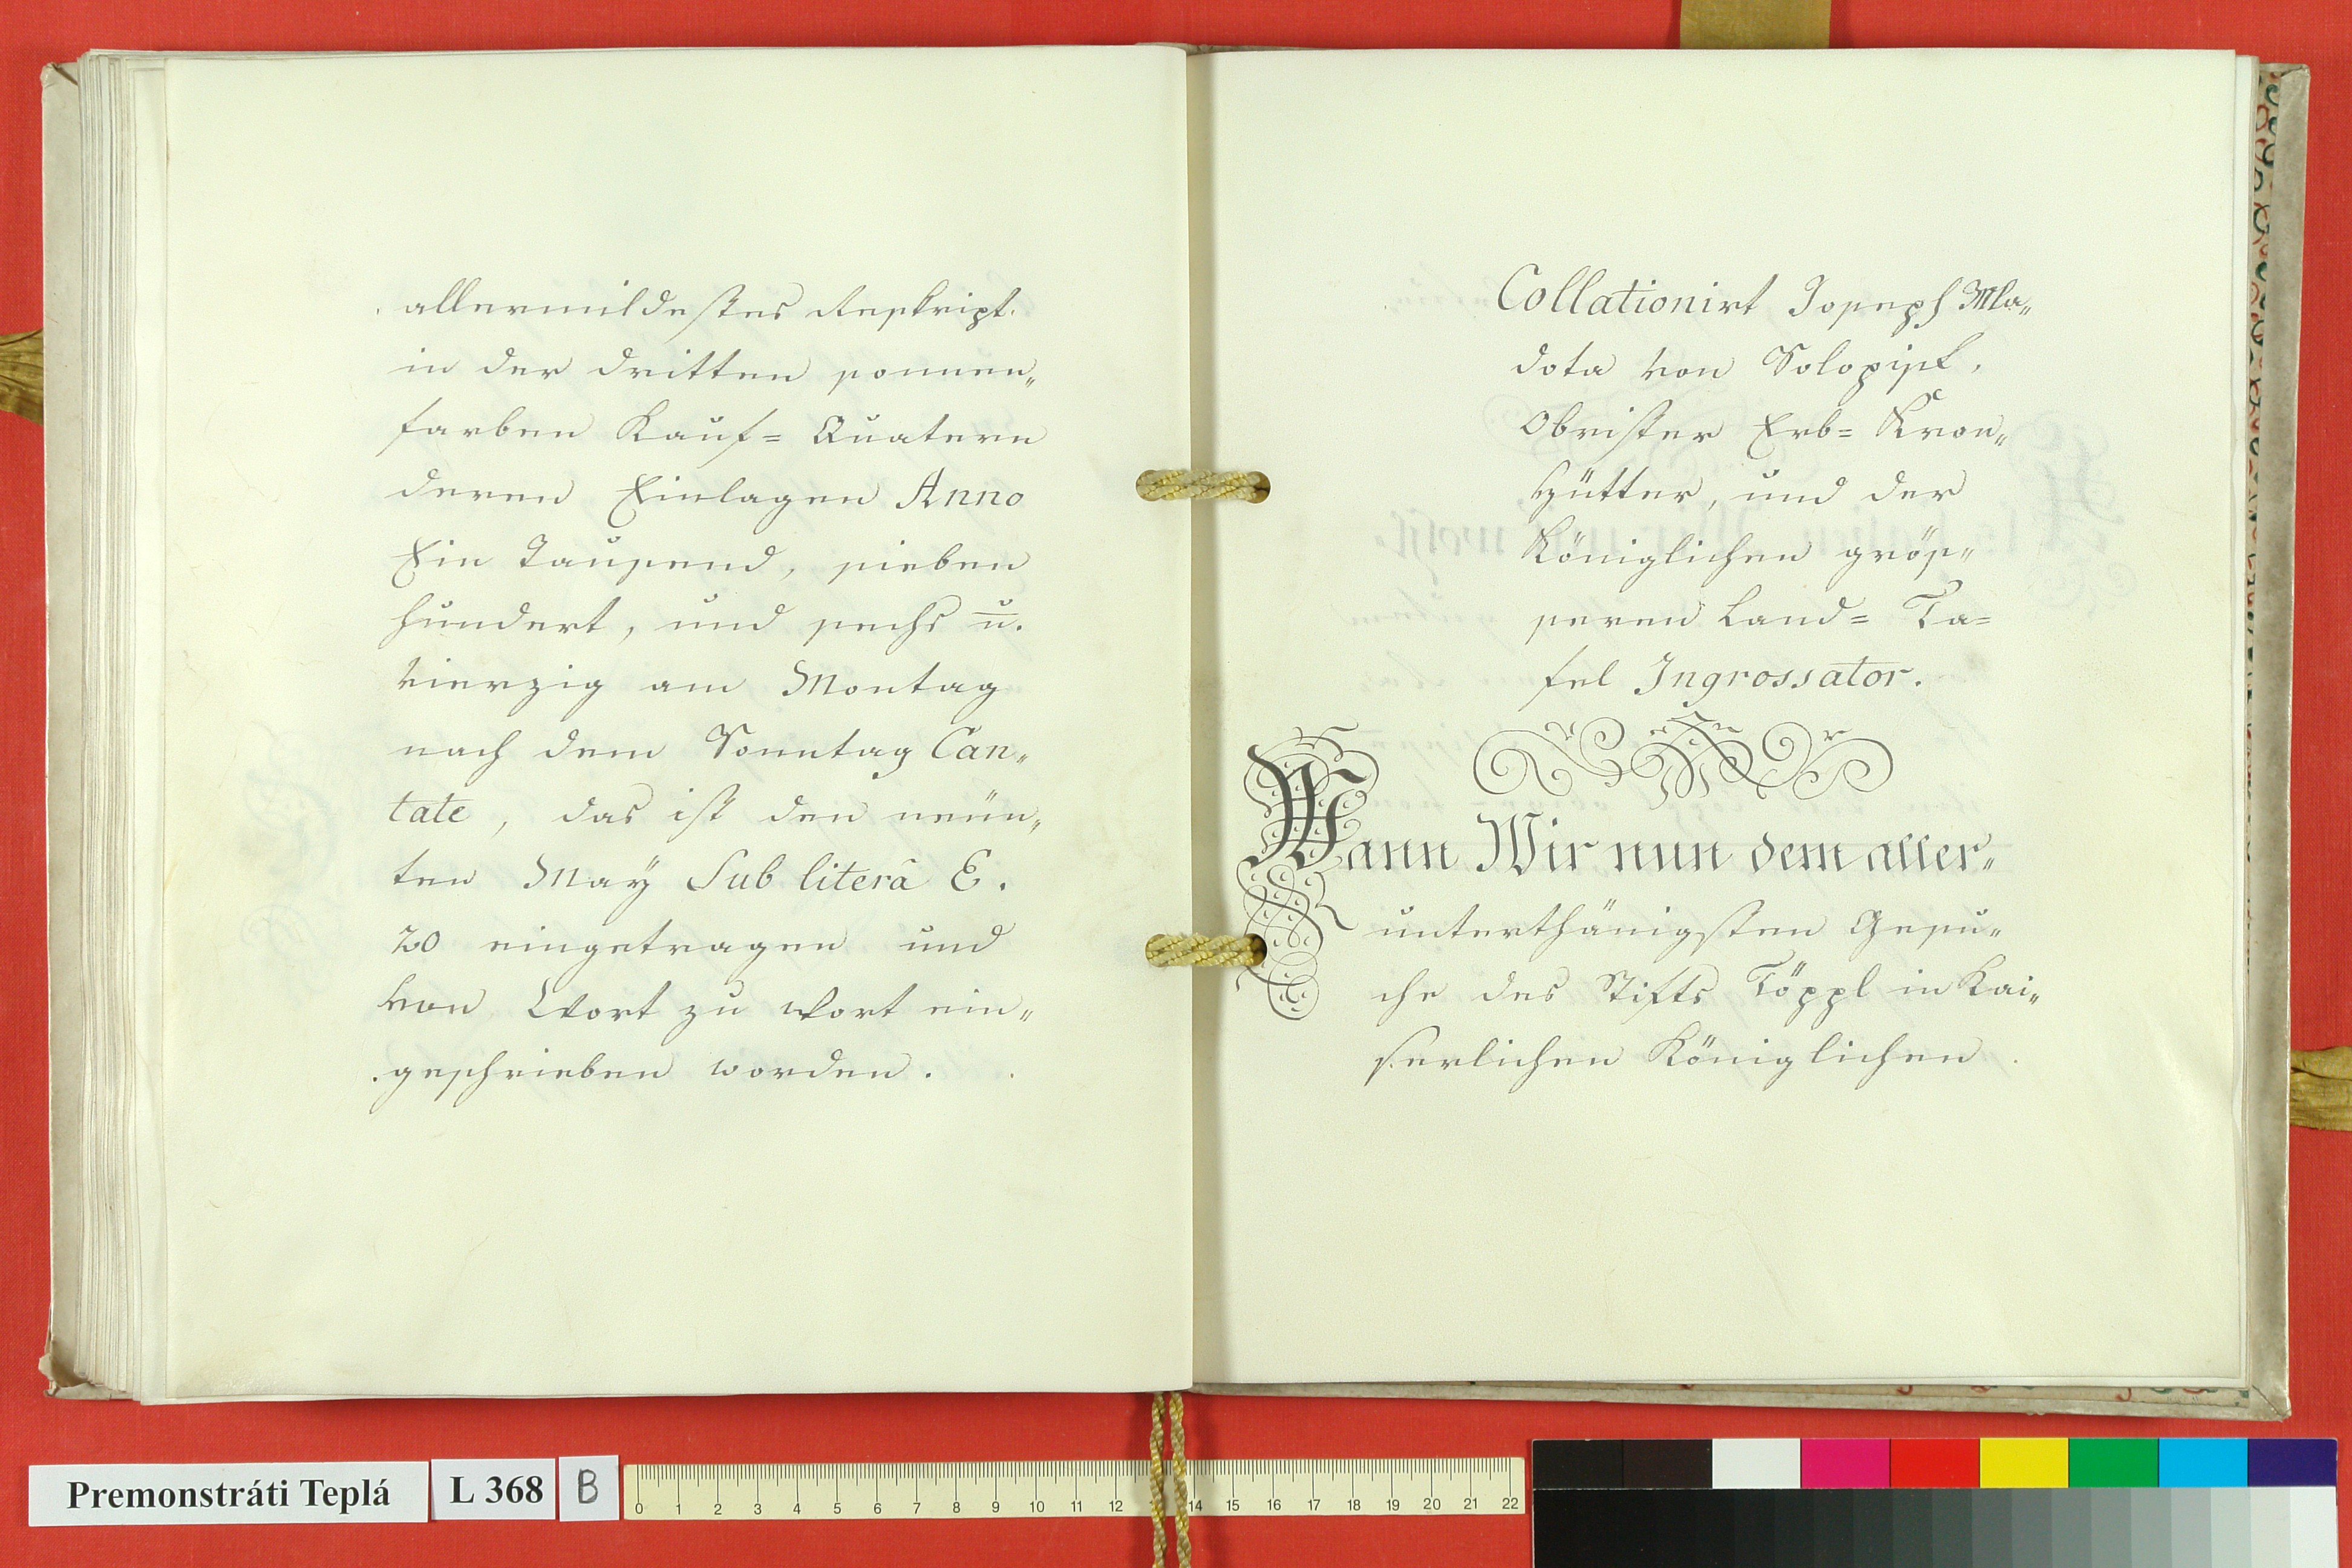 allermildestes Reskript.
in der dritten sonnen„
farben Kauf= Quatern
deren Einlagen Anno
Ein Tausend, sieben
hundert, und sechs u.
vierzig am Montag
nach dem Sonntag Can„
tate, das ist den neün„
ten Maÿ Sub literâ E.
20 eingetragen und
von Wort zu Wort ein„
geschrieben worden.
Collationirt Joseph Mla„
dota von Solopisk,
Obrister Erb= Kron„
Hütter, und der
Königlichen grös„
seren Land= Ta=
fel Ingrossator.
Wann Wir nun dem aller„
unterthänigsten Gesu„
che des Stifts Töppl in Kai„
serlichen Königlichen
Premonstráti Teplá L 368 B
0 1 2 3 4 5 6 7 8 9 10 11 12 14 15 16 17 18 19 20 21 22